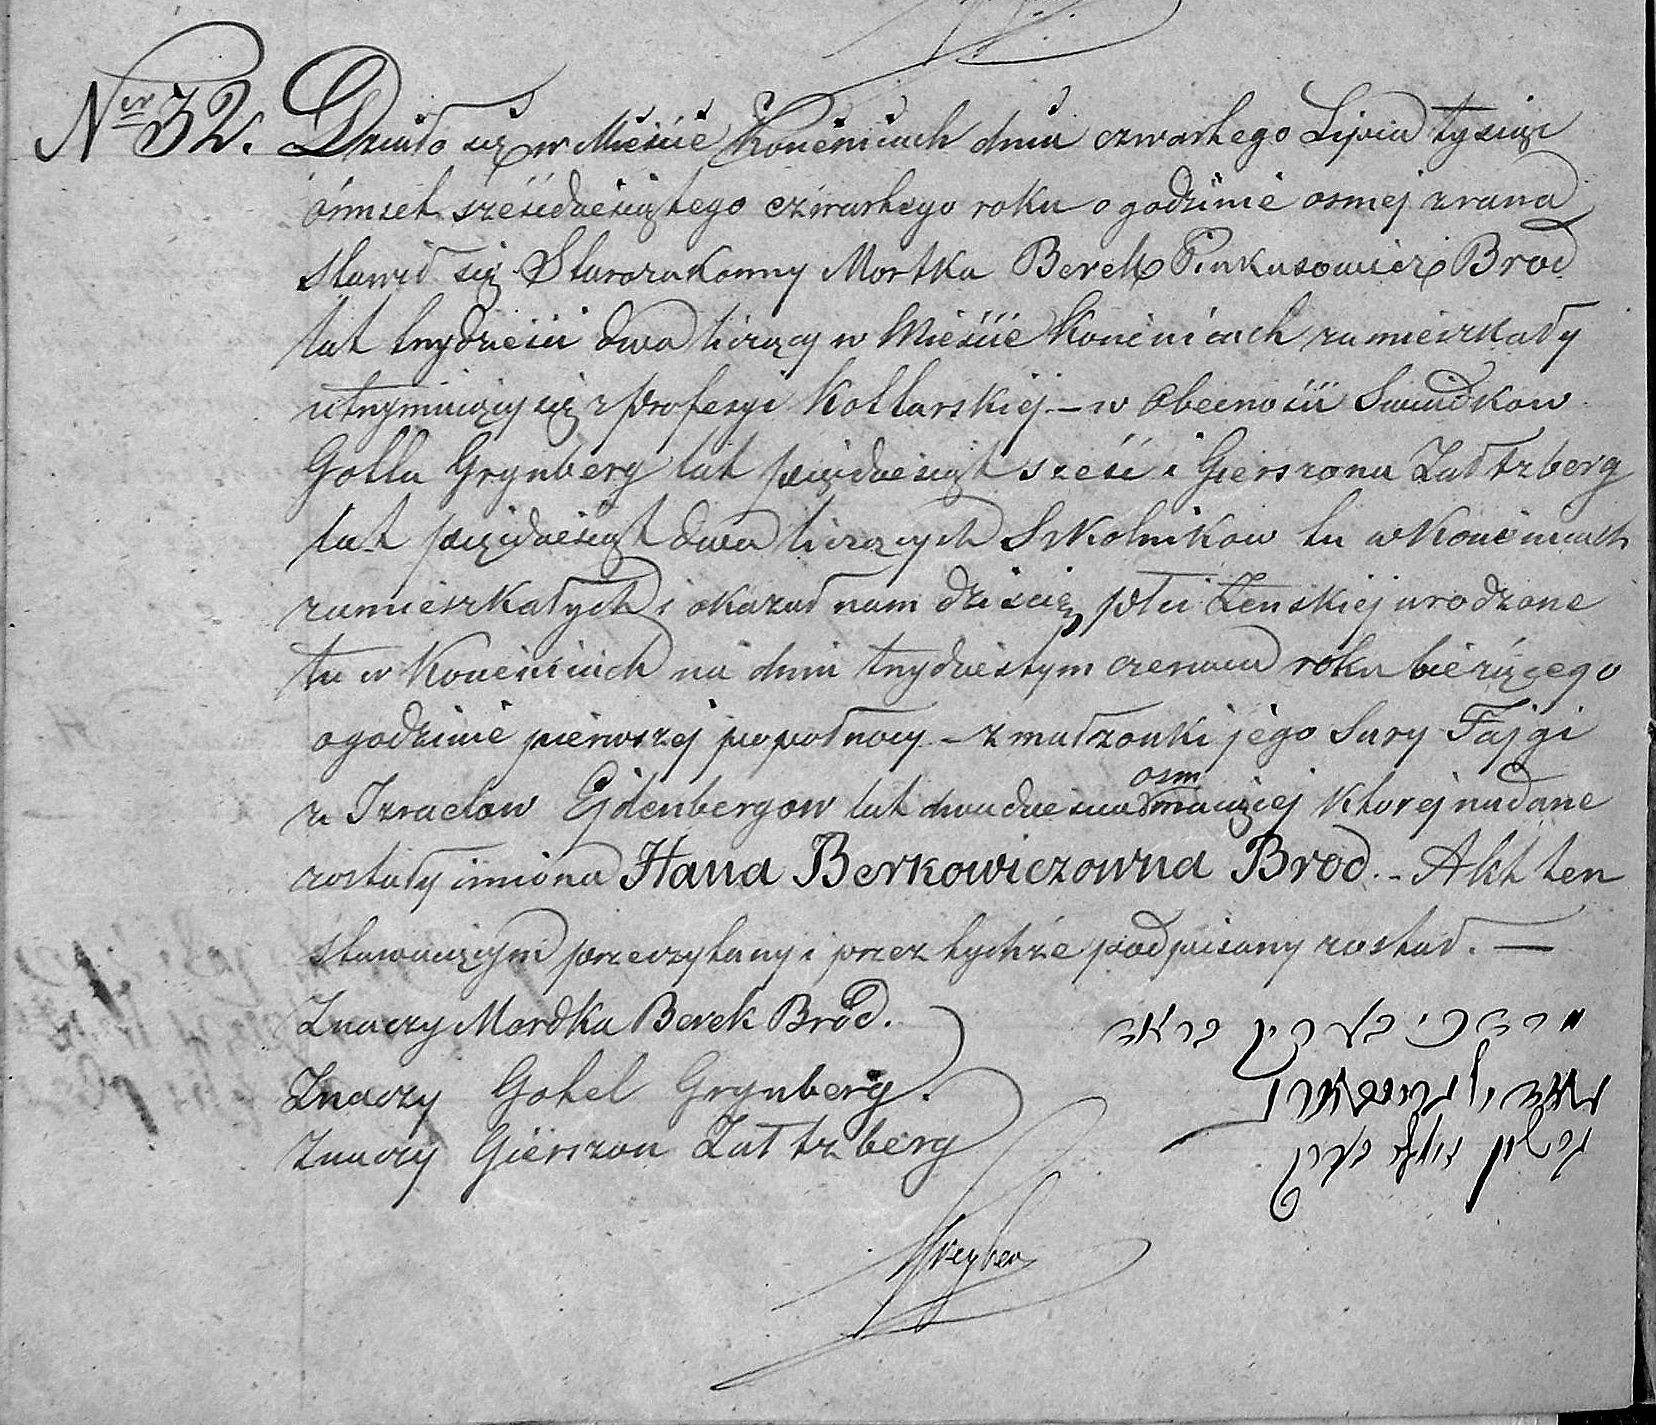 Ner 32. Działo się w Mieście Koniénicach dnia czwartego Lipca tysiąc
ośmset sześćdziesiątego czwartego roku o godzinie osmej zrana
Stawił się Starozakonny Mortka Berek Pinkusowicz Brod
lat trzydzieści dwa liczący w Mieście Koniénicach zamieszkały
utrzymujący się z profesyi Kotlarskiéj. – w Obecności Swiadkow
Gotla Grynberg lat pięćdziesiąt sześć i Gierszona Zaltzberg
lat pięćdziesiąt dwa liczących Szkolnikow tu w Koniénicach
zamieszkałych i okazał nam dziecię płci Żenskiéj urodzone
tu w Koniénicach na dniu trzydziestym czerwca roku bieżącego
o godzinie pierwszej po połnocy – z małzonki jego Sury Fajgi
z Izraelow Ejdenbergow lat dwadziescia osm maiącej ktorej nadane
zostały imiona Hana Berkowiczowna Brod. – Akt ten
stawaiącym przeczytany i przez tychże podpisany został. —
Znaczy Mordka Berek Bród.
Znaczy Gotel Grynberg.
Znaczy Gierszon Zaltzberg